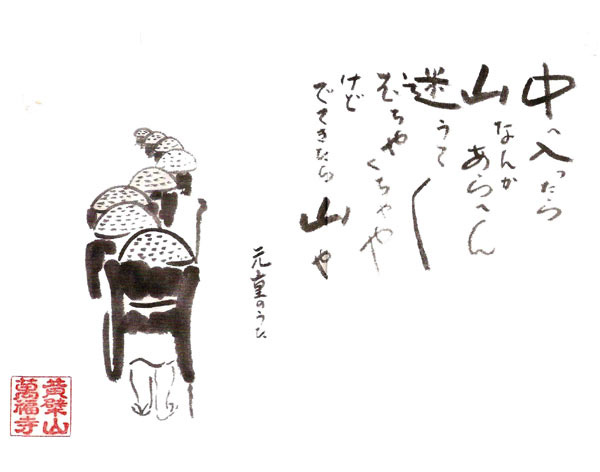 中へ入ったら
山なんかあらへん
迷うて〱
むちゃくちゃや
けど
でてきたら山や
のうた
黄檗山
萬福寺